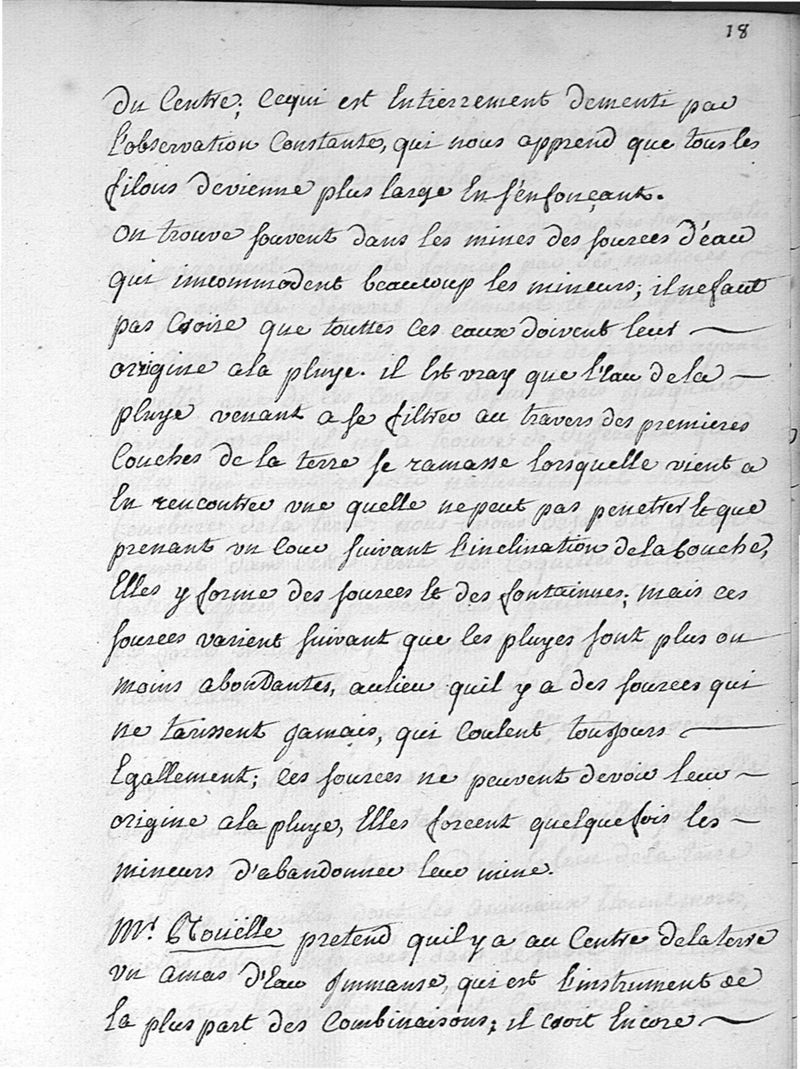 18
du Centre; cequi est Entierrement dementi par
l'observation Constante, qui nous apprend que tous les
filons devienne plus large En s'enfonçant.
On trouve souvent dans les mines des sources d'éau
qui imcommodent beaucoup les mineurs; il ne faut
pas Croire que touttes ces eaux doivent leur
origine a la pluye. il Est vray que l'Eau de la
pluye venant a se filtrer au travers des premieres
Couches de la terre se ramasse lorsquelle vient a
En rencontrer une quelle ne peut pas penetrer Et que
prenant un Cour suivant l'inclination de la Couche,
Elles y forme des sources Et des fontainnes; mais ces
sources varient suivant que les pluyes sont plus ou
moins abondantes, aulieu quil y a des sources qui
ne tarissent jamais, qui Coulent toujours
Egallement; ces sources ne peuvent devoir leur
origine a la pluye, Elles forcent quelquefois les
mineurs d'abandonner leur mine.
Mr. Rouëlle pretend quil y a au Centre de la terre
un amas d'Eau Jmmanse, qui est l'instrument de
la plus part des Combinaisons; il Croit Encore